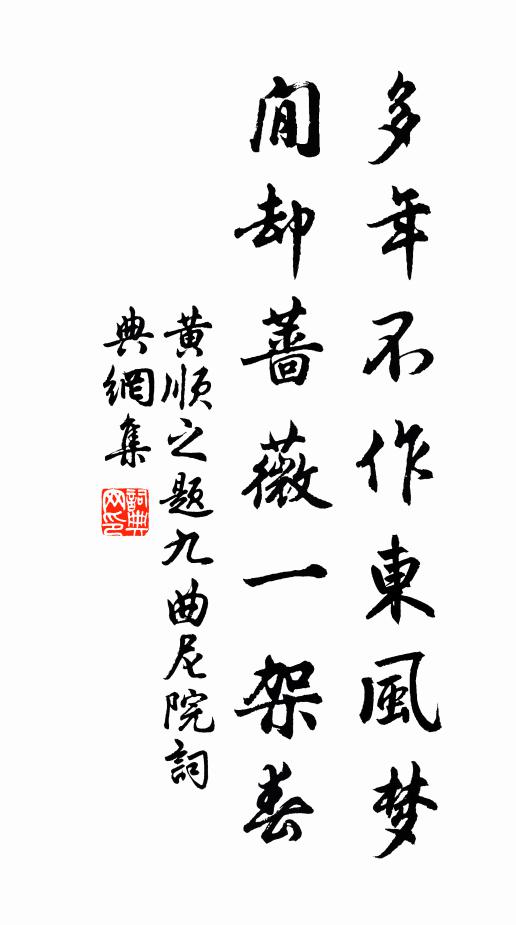 多年不作東風梦
閒却蔷薇一架春
黄順之题九曲尼院詞
典網集
詞典
网印